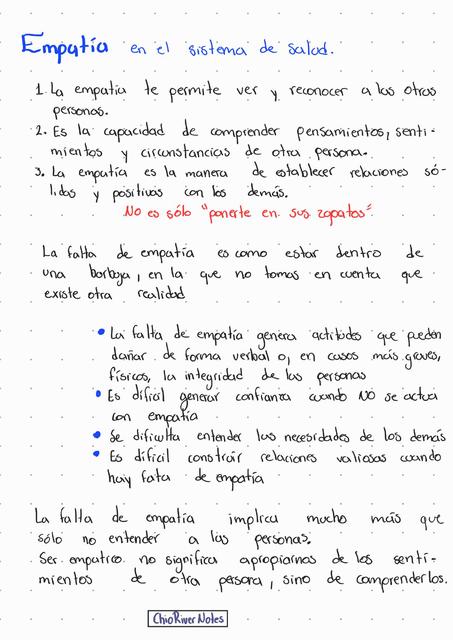 Empatía en el sistema de salud.
1. La empatía te permite ver y reconocer a las otras
personas.
2. Es la capacidad de comprender pensamientos, senti-
mientos y circunstancias de otra persona.
3. La empatía es la manera de establecer relaciones só-
lidas y positivas con los demás.
No es sólo "ponerte en sus zapatos".
La falta de empatía es como estar dentro de
una borboja, en la que no tomas en cuenta que
existe otra realidad
• La falta de empatía genera actitudes que pueden
dañar de forma verbal o, en casos más graves,
físicos, la integridad de las personas
• Es difícil generar confianza cuando NO se actua
con empatía
• Se dificulta entender las necesidades de los demás
• Es difícil construir relaciones valiosas cuando
hay fata de empatía
La falta de empatía implica mucho más que
sólo no entender a las personas.
Ser empatico no significa apropiarnos de los senti-
mientos de otra persona, sino de comprenderlos.
ChioRiver Notes